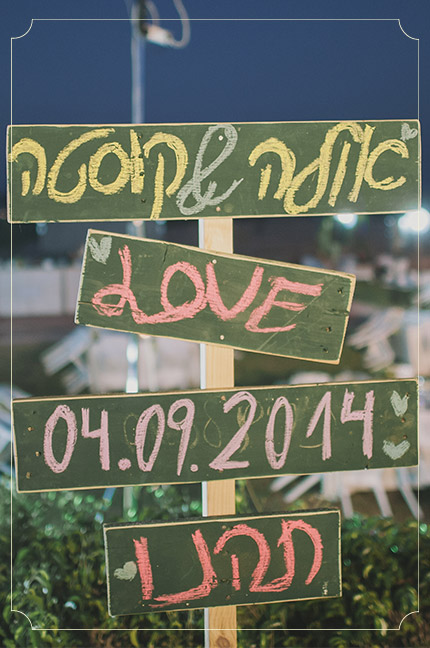 אולה & קוסטה
LOVE
04.09.2014
תהנו